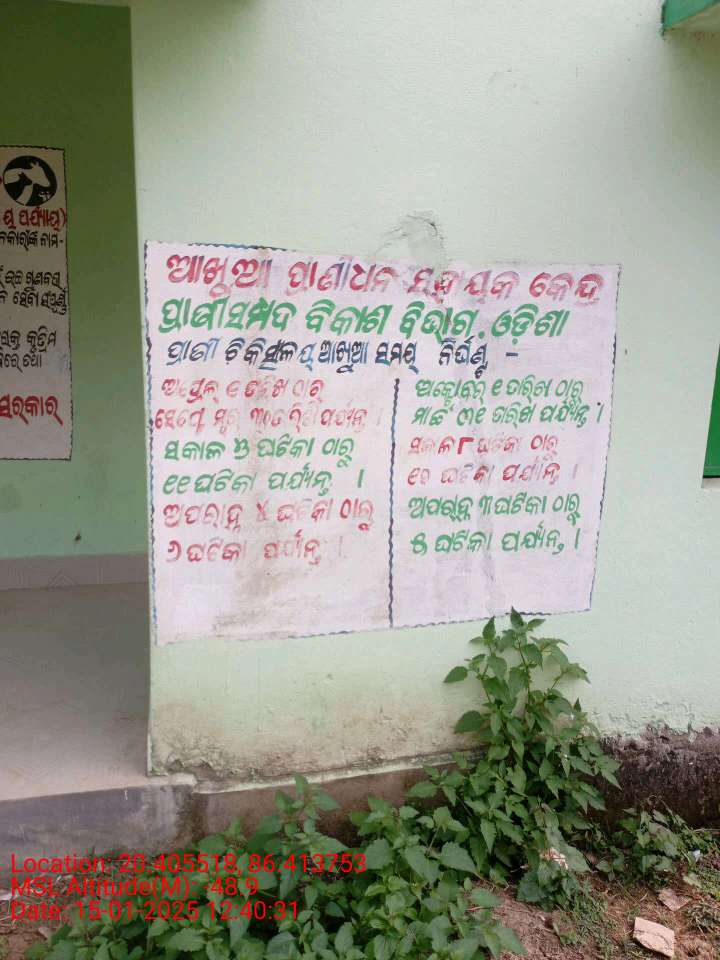 ୟ ପର୍ଯ୍ୟାୟ)
ନକାରୀଙ୍କ ନାମ-
ସରକାର
ଆଖୁଆ ପ୍ରାଣୀଧନ ସହାୟକ କେନ୍ଦ୍ର
ପ୍ରାଣୀସମ୍ପଦ ବିକାଶ ବିଭାଗ, ଓଡ଼ିଶା
ପ୍ରାଣୀ ଚିକିତ୍ସାଳୟ ଆଖୁଆ ସମୟ ନିର୍ଘଣ୍ଟ -
ଅପ୍ରେଲ ୧ ତାରିଖ ଠାରୁ
ସେପ୍ଟେମ୍ବର ୩୦ ତାରିଖ ପର୍ଯ୍ୟନ୍ତ ।
ସକାଳ ୭ ଘଟିକା ଠାରୁ
୧୧ ଘଟିକା ପର୍ଯ୍ୟନ୍ତ ।
ଅପରାହ୍ନ ୪ ଘଟିକା ଠାରୁ
୬ ଘଟିକା ପର୍ଯ୍ୟନ୍ତ ।
ଅକ୍ଟୋବର ୧ ତାରିଖ ଠାରୁ
ମାର୍ଚ୍ଚ ୩୧ ତାରିଖ ପର୍ଯ୍ୟନ୍ତ ।
ସକାଳ ୮ ଘଟିକା ଠାରୁ
୧୨ ଘଟିକା ପର୍ଯ୍ୟନ୍ତ ।
ଅପରାହ୍ନ ୩ ଘଟିକା ଠାରୁ
୫ ଘଟିକା ପର୍ଯ୍ୟନ୍ତ ।
Location: 20.405518, 86.413753
MSL Altitude(M): -48.9
Date: 15-01-2025 12:40:31